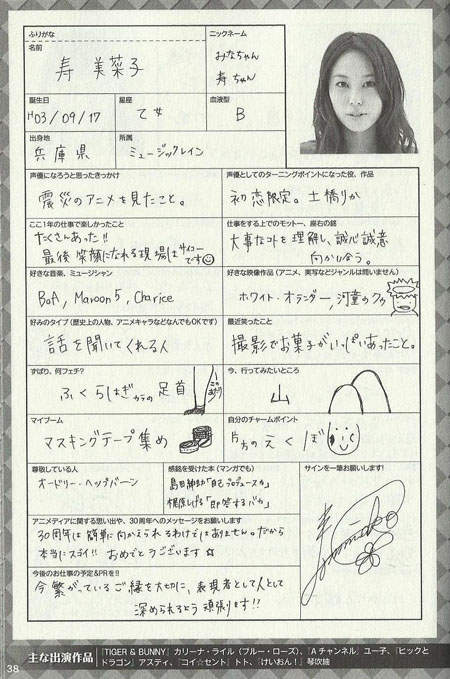 ふりがな
名前
寿 美菜子
ニックネーム
みなちゃん
寿ちゃん
誕生日
H03/09/17
星座
乙女
血液型
B
出身地
兵庫県
所属
ミュージックレイン
声優になろうと思ったきっかけ
震災のアニメを見たこと。
声優としてのターニングポイントになった役、作品
初恋限定。土橋りか
ここ1年の仕事で楽しかったこと
たくさんあった!!
最後 笑顔になれる現場はサイコーです
仕事をする上でのモットー、座右の銘
大事なコトを理解し、誠心誠意
向かい合う。
好きな音楽、ミュージシャン
BoA, Maroon5, Charice
好きな映像作品(アニメ、実写などジャンルは問いません)
ホワイト・オランダー, 河童のクゥ
好みのタイプ(歴史上の人物、アニメキャラなどなんでもOKです)
話を聞いてくれる人
最近笑ったこと
撮影でお菓子がいっぱいあったこと。
ずばり、何フェチ?
ふくらはぎからの足首
このあたり
今、行ってみたいところ
山
マイブーム
マスキングテープ集め
自分のチャームポイント
片方のえくぼ
尊敬している人
オードリー・ヘップバーン
感銘を受けた本(マンガでも)
島田紳助「自己プロデュース力」
梶原しげる「即答するバカ」
サインを一筆お願いします!
アニメディアに関する思い出や、30周年へのメッセージをお願いします
30周年は簡単に向かえられるわけではありません。だから
本当にスゴイ!! おめでとうございます☆
今後のお仕事の予定&PRを!!
今繋がっているご縁を大切に、表現者として人として
深められるよう頑張ります!!
主な出演作品
『TIGER & BUNNY』カリーナ・ライル(ブルー・ローズ)、『Aチャンネル』ユー子、『ヒックと
ドラゴン』アスティ、『コイ☆セント』トト、『けいおん!』琴吹紬
38